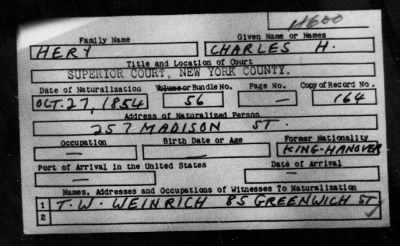 H600
Family Name Given Name or Names
HERY CHARLES H.
Title and Location of Court
SUPERIOR COURT, NEW YORK COUNTY.
Date of Naturalization Volume or Bundle No. Page No. Copy of Record No.
OCT. 27, 1854 56 — 164
Address of Naturalized Person
257 MADISON ST.
Occupation Birth Date or Age Former Nationality
— — KING-HANOVER
Port of Arrival in the United States Date of Arrival
— —
Names, Addresses and Occupations of Witnesses To Naturalization
1 T. W. WEINRICH 85 GREENWICH ST
2